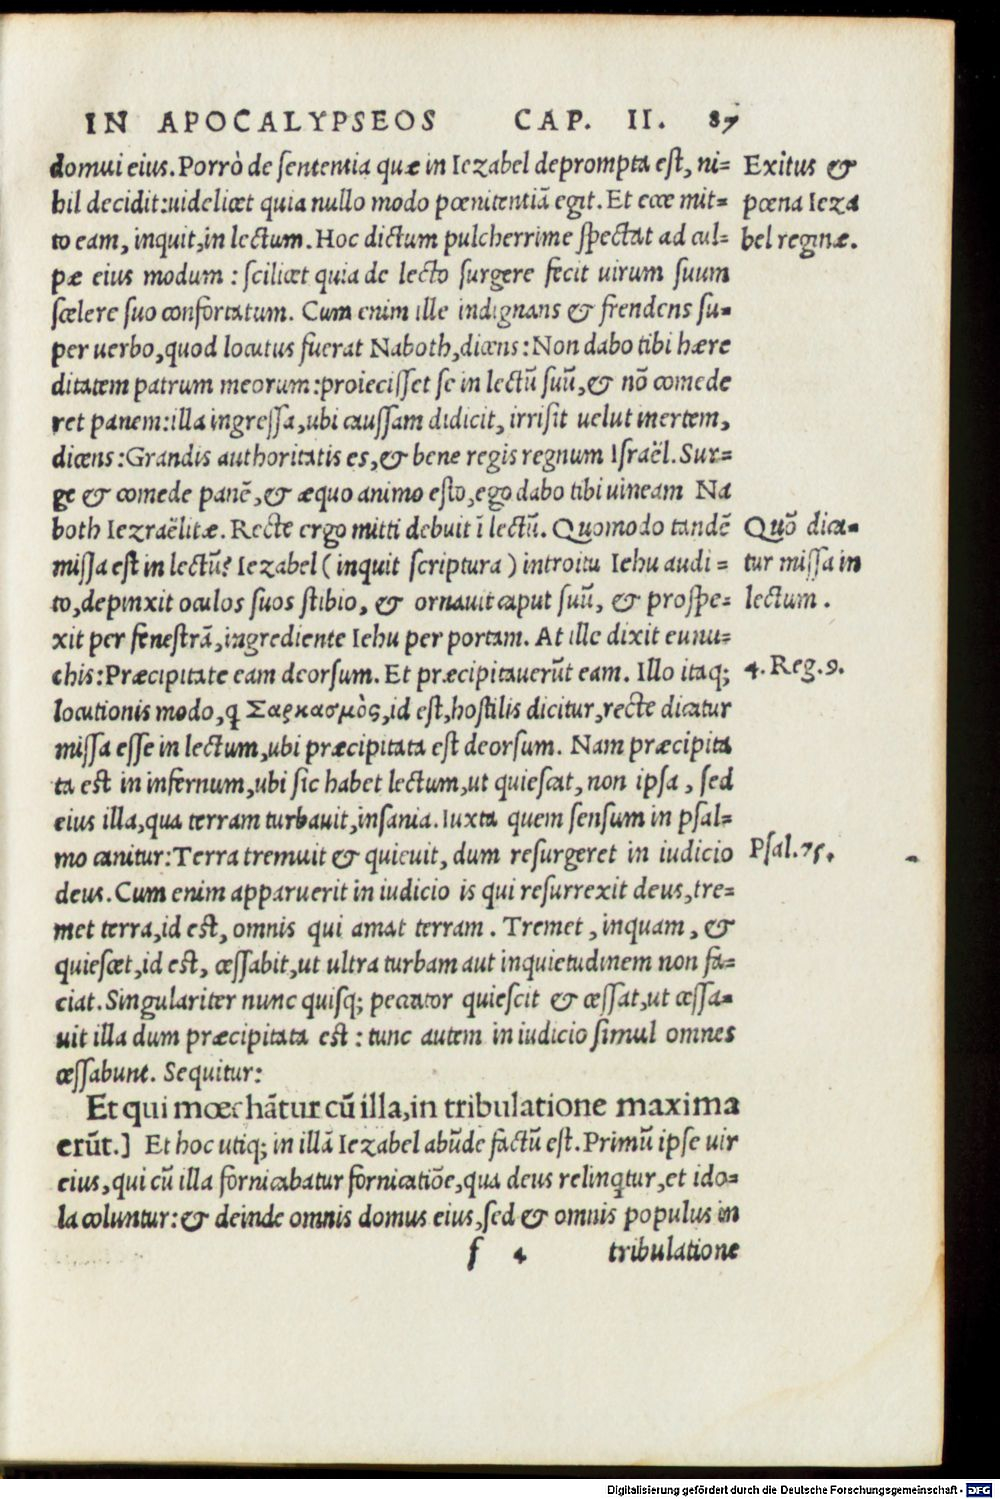 IN APOCALYPSEOS CAP. II. 87
domui eius. Porrò de sententia quæ in Iezabel deprompta est, ni-
hil decidit: uidelicet quia nullo modo pœnitentiã egit. Et ecce mit-
to eam, inquit, in lectum. Hoc dictum pulcherrime spectat ad cul-
pæ eius modum: scilicet quia de lecto surgere fecit uirum suum
scelere suo confortatum. Cum enim ille indignans & frendens su-
per uerbo, quod locutus fuerat Naboth, dicens: Non dabo tibi hære
ditatem patrum meorum: proiecisset se in lectũ suũ, & nõ comede
ret panem: illa ingressa, ubi caussam didicit, irrisit uelut inertem,
dicens: Grandis authoritatis es, & bene regis regnum Israël. Sur-
ge & comede panẽ, & æquo animo esto, ego dabo tibi uineam Na
both Iezraëlitæ. Recte ergo mitti debuit ĩ lectũ. Quomodo tandẽ
missa est in lectũ? Iezabel (inquit scriptura) introitu Iehu audi-
to, depinxit oculos suos stibio, & ornauit caput suũ, & prospe-
xit per fenestrã, ingrediente Iehu per portam. At ille dixit eunu-
chis: Præcipitate eam deorsum. Et præcipitauerũt eam. Illo itaq;
locutionis modo, q̃ Σαρκασμὸς, id est, hostilis dicitur, recte dicatur
missa esse in lectum, ubi præcipitata est deorsum. Nam præcipita
ta est in infernum, ubi sic habet lectum, ut quiescat, non ipsa, sed
eius illa, qua terram turbauit, insania. Iuxta quem sensum in psal-
mo canitur: Terra tremuit & quieuit, dum resurgeret in iudicio
deus. Cum enim apparuerit in iudicio is qui resurrexit deus, tre-
met terra, id est, omnis qui amat terram. Tremet, inquam, &
quiescet, id est, cessabit, ut ultra turbam aut inquietudinem non fa-
ciat. Singulariter nunc quisq; peccator quiescit & cessat, ut cessa-
uit illa dum præcipitata est: tunc autem in iudicio simul omnes
cessabunt. Sequitur:
Et qui mœchãtur cũ illa, in tribulatione maxima
erũt.] Et hoc utiq; in illã Iezabel abũde factũ est. Primũ ipse uir
eius, qui cũ illa fornicabatur fornicatiõe, qua deus relinq̃tur, et ido-
la coluntur: & deinde omnis domus eius, sed & omnis populus in
f 4 tribulatione
Exitus &
pœna Ieza
bel reginæ.
Quõ dica-
tur missa in
lectum.
4. Reg. 9.
Psal. 75.
Digitalisierung gefördert durch die Deutsche Forschungsgemeinschaft - DFG